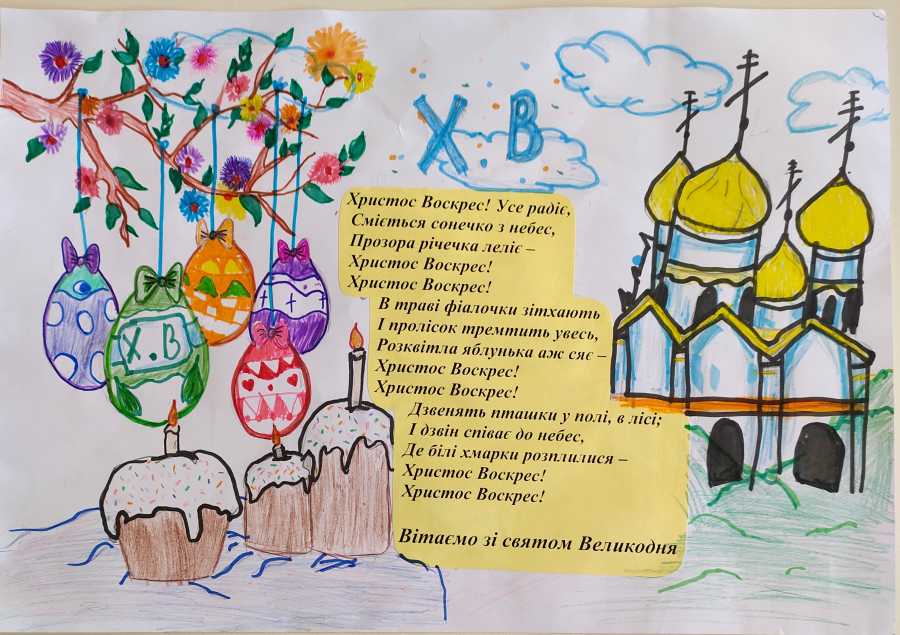 Х.В
Х.В
Христос Воскрес! Усе радіє,
Сміється сонечко з небес,
Прозора річечка леліє –
Христос Воскрес!
Христос Воскрес!
В траві фіалочки зітхають
І пролісок тремтить увесь,
Розквітла яблунька аж сяє –
Христос Воскрес!
Христос Воскрес!
Дзвенять пташки у полі, в лісі;
І дзвін співає до небес,
Де білі хмарки розплилися –
Христос Воскрес!
Христос Воскрес!
Вітаємо зі святом Великодня